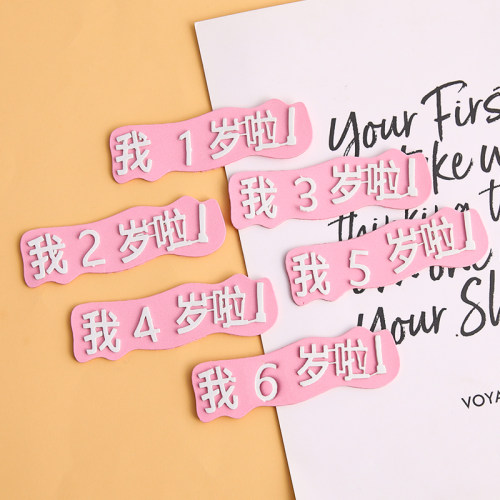 我 1 岁啦!
我 3 岁啦!
我 2 岁啦!
我 5 岁啦!
我 4 岁啦!
我 6 岁啦!
Your Firs
your Sl
VOYA